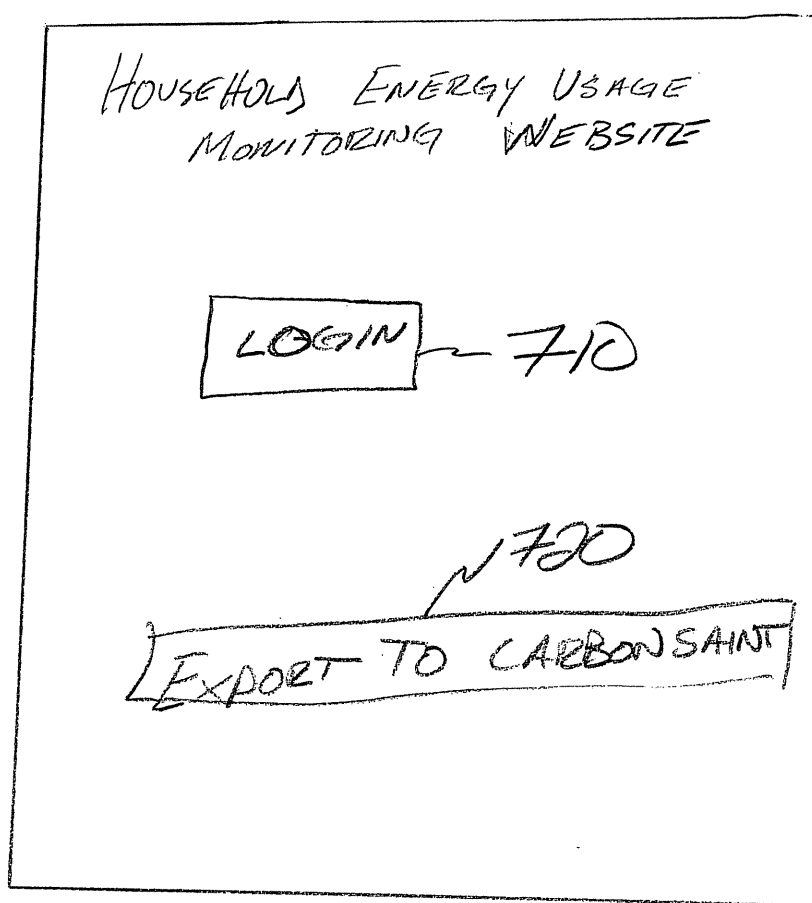 HOUSEHOLD ENERGY USAGE
MONITORING WEBSITE
LOGIN 710
720
EXPORT TO CARBONSAINT